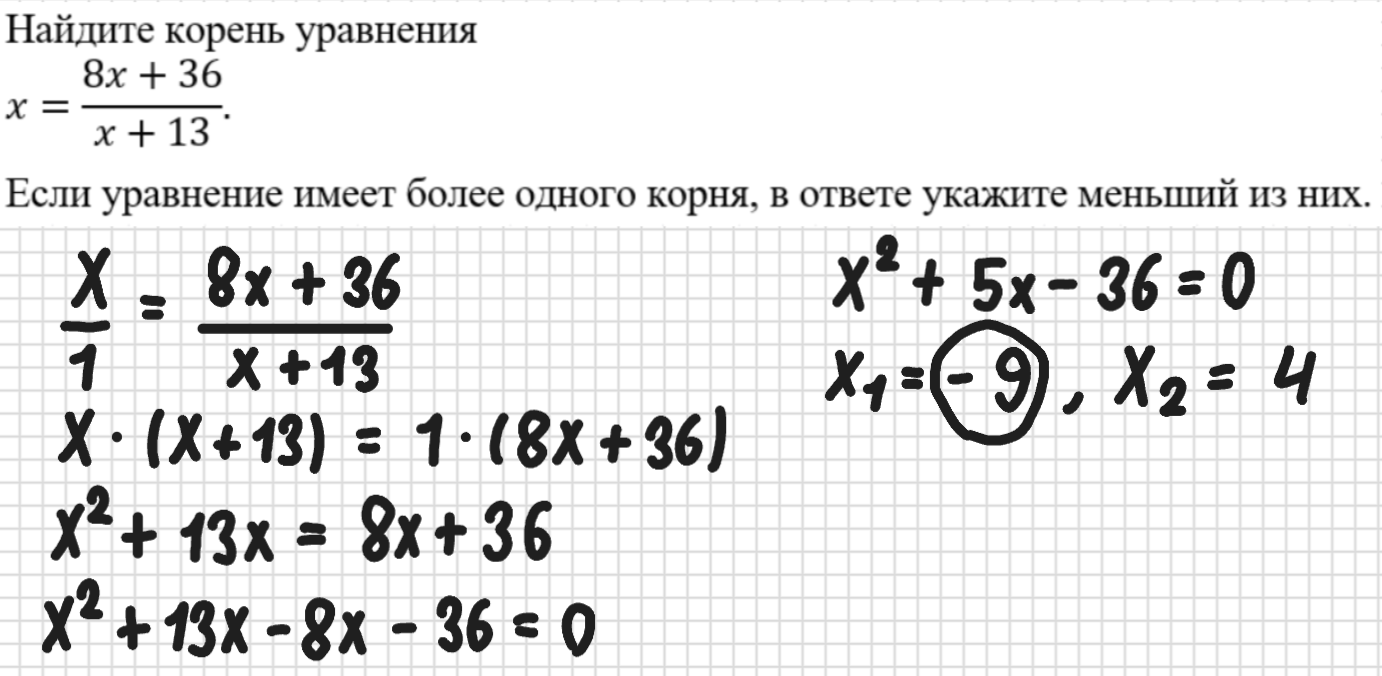 Найдите корень уравнения
x = (8x + 36)/(x + 13).
Если уравнение имеет более одного корня, в ответе укажите меньший из них.
x/1 = (8x + 36)/(x + 13)
x · (x + 13) = 1 · (8x + 36)
x² + 13x = 8x + 36
x² + 13x - 8x - 36 = 0
x² + 5x - 36 = 0
x₁ = -9, x₂ = 4